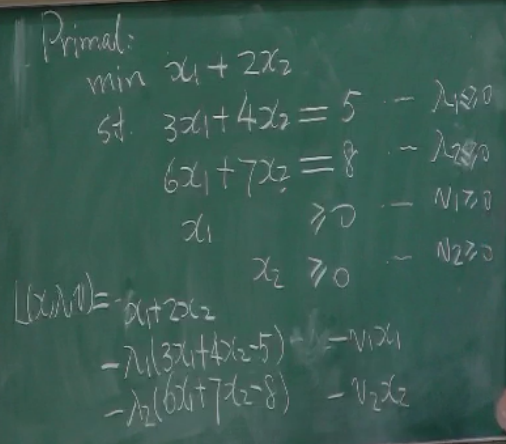 Primal:
min x₁ + 2x₂
st. 3x₁+4x₂ = 5 — λ₁≥0
6x₁+7x₂ = 8 — λ₂≥0
x₁ ≥0 — ν₁≥0
x₂ ≥0 — ν₂≥0
L(x,λ,ν)= x₁+2x₂
-λ₁(3x₁+4x₂-5) -ν₁x₁
-λ₂(6x₁+7x₂-8) -ν₂x₂